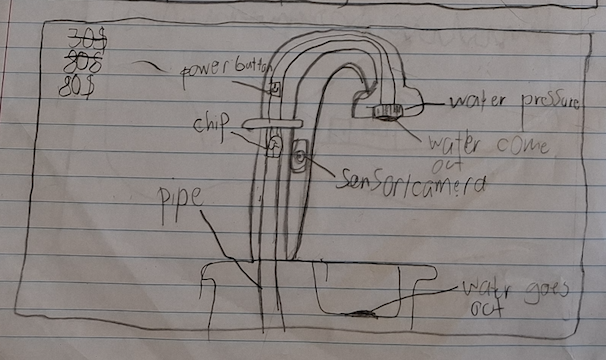 30$
80$
80$
power button
chip
pipe
water pressure
water come
out
sensor/camera
water goes
out